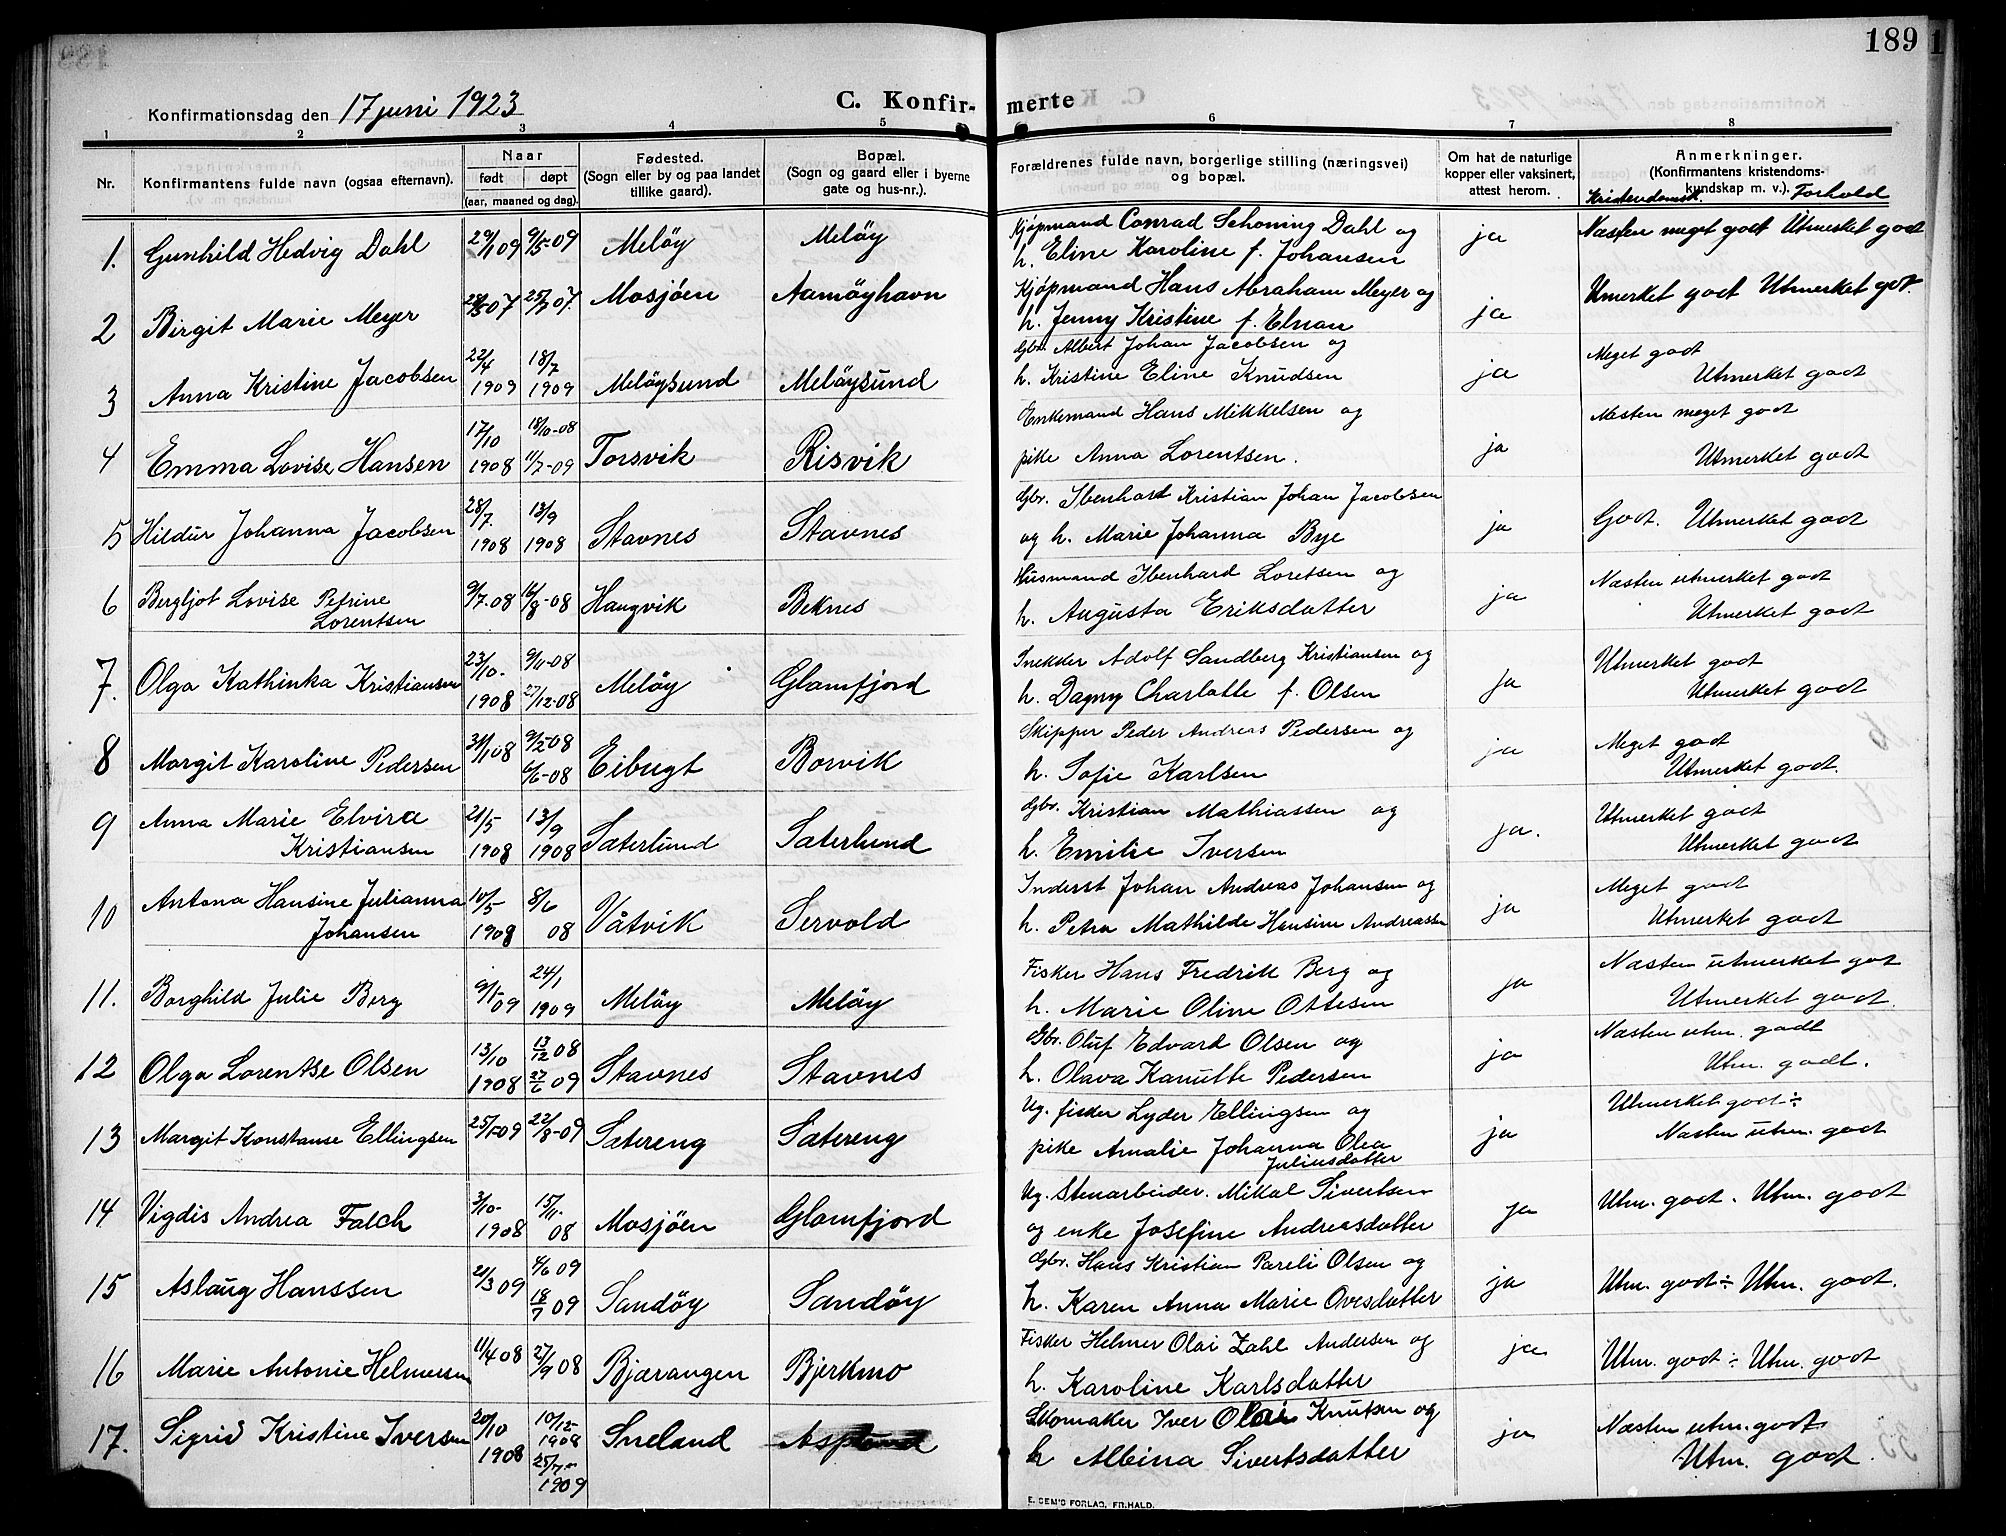 189
Konfirmationsdag den 17 juni 1923
C. Konfir-merte
1 2 3 4 5 6 7 8
Nr.
Konfirmantens fulde navn (ogsaa efternavn).
Naar
født døpt
(aar, maaned og dag).
Fødested.
(Sogn eller by og paa landet
tillike gaard).
Bopæl.
(Sogn og gaard eller i byerne
gate og hus-nr.).
Forældrenes fulde navn, borgerlige stilling (næringsvei)
og bopæl.
Om hat de naturlige
kopper eller vaksinert,
attest herom.
Anmerkninger.
(Konfirmantens kristendoms-
kundskap m. v.).
Kristendomsk. Forhold
1. Gunhild Hedvig Dahl 29/1 09 9/5-09 Meløy Meløy
Kjøpmand Conrad Schoning Dahl og
h. Eline Karoline f. Johansen
ja Næsten meget godt Utmerket godt
2 Birgit Marie Meyer 07 25/7 07. Mosjøen Aamøyhavn
Kjøpmand Hans Abraham Meyer og
h. Jenny Kristine f. Elnan
ja Utmerket godt Utmerket got.
3 Anna Kristine Jacobsen 22/4 1909 18/7 1909 Meløysund Meløysund
Gbr. Albert Johan Jacobsen og
h. Kristine Eline Knudsen
ja Meget godt
Utmerket godt
4 Emma Lovise Hansen 17/10 1908 18/10-08 11/7-09 Torsvik Risvik
Enkemand Hans Mikkelsen og
pike Anna Lorentsen.
ja Næsten meget godt
Utmerket godt
5 Hildur Johanna Jacobsen 28/7. 1908 13/9 1908 Stavnes Stavnes
Gbr. Ibenhart Kristian Johan Jacobsen
og h. Marie Johanna Bye
ja Godt. Utmerket godt
6 Bergljot Lovise Petrine
Lorentsen
9/7-08 16/8-08 Haugvik Beknes
Husmand Ibenhard Loretsen og
h. Augusta Eriksdatter
ja Næsten utmerket godt
Utmerket godt
7. Olga Kathinka Kristiansen 23/10- 1908 9/11-08 27/12-08 Meløy Glomfjord
Snekker Adolf Sandberg Kristiansen og
h. Dagny Charlotte f. Olsen
ja Utmerket godt
Utmerket godt
8 Margit Karoline Pedersen 31/1 08 9/2-08 6/6-08 Eibugt Borvik
Skipper Peder Andreas Pedersen og
h. Sofie Karlsen
ja Meget godt
Utmerket godt.
9 Anna Marie Elvira
Kristiansen
21/5 1908 13/9 1908 Sæterlund Sæterlund
Gbr. Kristian Mathiassen og
h. Emilie Iversen
ja. Utmerket godt
Utmerket godt
10 Antona Hansine Julianna
Johansen
10/5 1908 8/6 08 Våtvik Servold
Inderst Johan Andreas Johansen og
h. Petra Mathilde Hansine Andreassen
ja Meget godt
Utmerket godt
11. Borghild Julie Berg 9/1-09 24/1 1909 Meløy Meløy
Fisker Hans Fredrik Berg og
h. Marie Oline Ottesen
ja Næsten utmerket got
Utmerket godt.
12 Olga Lorentse Olsen 13/10 1908 13/12 08 27/6 09 Stavnes Stavnes
Gbr. Oluf Edvard Olsen og
h. Olava Kanutte Pedersen
ja Næsten utm. godt
Utm. godt.
13 Margit Konstanse Ellingsen 25/1-09 22/8-09 Sætereng Sætereng
Ug. fisker Lyder Ellingsen og
pike Amalie Johanna Olea
Juliusdatter
ja Utmerket godt ÷
Næsten utm. godt
14 Vigdis Andrea Falch 3/10- 1908 15/11- 08 Mosjøen Glomfjord
Ug. Stenarbeider. Mikal Sivertsen
og enke Josefine Andreasdatter
ja Utm. godt. Utm. godt
15 Aslaug Hanssen 21/3 09 4/6 09 18/7 09 Sandøy Sandøy
Gbr. Hans Kristian Pareli Olsen og
h. Karen Anna Marie Ovesdatter
ja Utm. godt ÷ Utm. godt.
16 Marie Antonie Helmersen 11/4 08 27/9 08 Bjærangen Bjerkmo
Fisker Helmer Olai Zahl Andersen og
h. Karoline Karlsdatter
ja Utm. godt ÷ Utm. godt
17. Sigrid Kristine Iversen 20/10 1908 10/12- 1908 25/7- 1909 Sneland
Skomaker Iver Olai Knutsen og
h Albina Sivertsdatter
ja Næsten utm. godt
Utm. godt.
E. SEM'S FORLAG, FR.HALD.